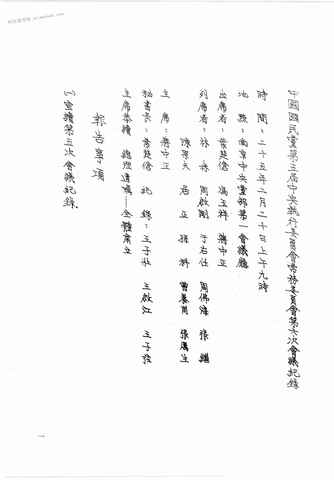 中國國民黨第五屆中央執行委員會常務委員會第六次會議紀錄
時間：二十五年二月二十日上午九時
地點：南京中央黨部第一會議廳
出席者：葉楚傖 馮玉祥 蔣中正
列席者：林森 周啟剛 于右任 周佛海 張繼
陳璧君 居正 孫科 曾養甫 張厲生
主席：蔣中正
秘書長：葉楚傖 紀錄：王子壯 王啟江 王子弦
主席恭讀 總理遺囑——全體肅立
報告事項
(一)宣讀第五次會議紀錄。
一